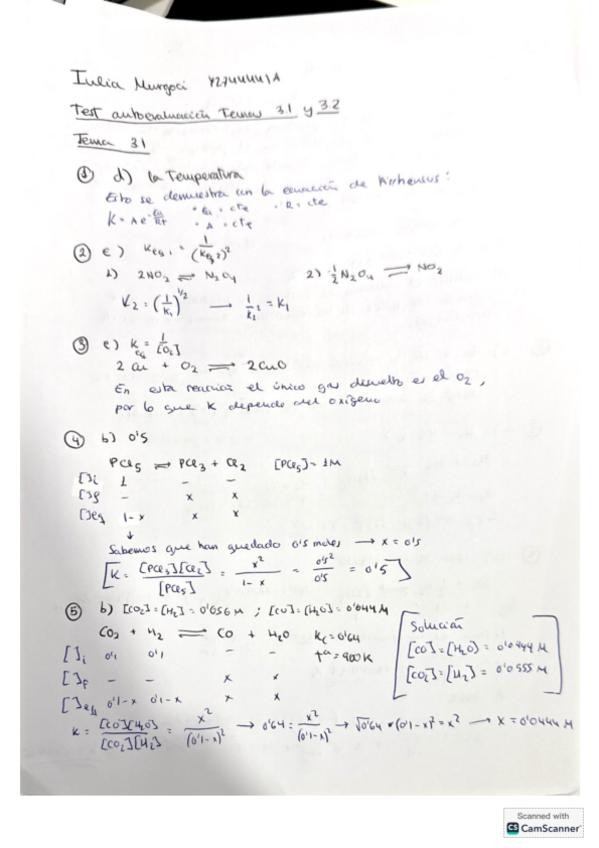 Iulia Murgoci Y2744441A
Test autoevaluación Temas 3.1 y 3.2
Tema 3.1
① d) la Temperatura
Esto se demuestra con la ecuación de
K = A e^-Ea/RT · Ea = cte · R = cte
· A = cte
② e) Keq,1 = 1/(Keq,2)²
1) 2NO₂ ⇌ N₂O₄ 2) ½N₂O₄ ⇌ NO₂
K₂ = (1/K₁)^1/2 → 1/K₂² = K₁
③ e) Keq = 1/[O₂]
2 Cu + O₂ ⇌ 2CuO
En esta reacción el único gas disuelto es el O₂,
por lo que K depende del oxígeno
④ b) 0'5
PCl₅ ⇌ PCl₃ + Cl₂ [PCl₅] = 1M
[ ]i 1 - -
[ ]f - x x
[ ]eq 1-x x x
↓
Sabemos que han quedado 0'5 moles → x = 0'5
[K = [PCl₃][Cl₂]/[PCl₅] = x²/1-x = 0'5²/0'5 = 0'5]
⑤ b) [CO₂] = [H₂] = 0'056 M ; [CO] = [H₂O] = 0'044 M
CO₂ + H₂ ⇌ CO + H₂O Kc = 0'64
[ ]i 0'1 0'1 - - Tª = 900K
[ ]f - - x x
[ ]eq 0'1-x 0'1-x x x
K = [CO][H₂O]/[CO₂][H₂] = x²/(0'1-x)² → 0'64 = x²/(0'1-x)² → √0'64 · (0'1-x)² = x² → x = 0'0444 M
Solución
[CO] = [H₂O] = 0'0444 M
[CO₂] = [H₂] = 0'0555 M
Scanned with
CS CamScanner